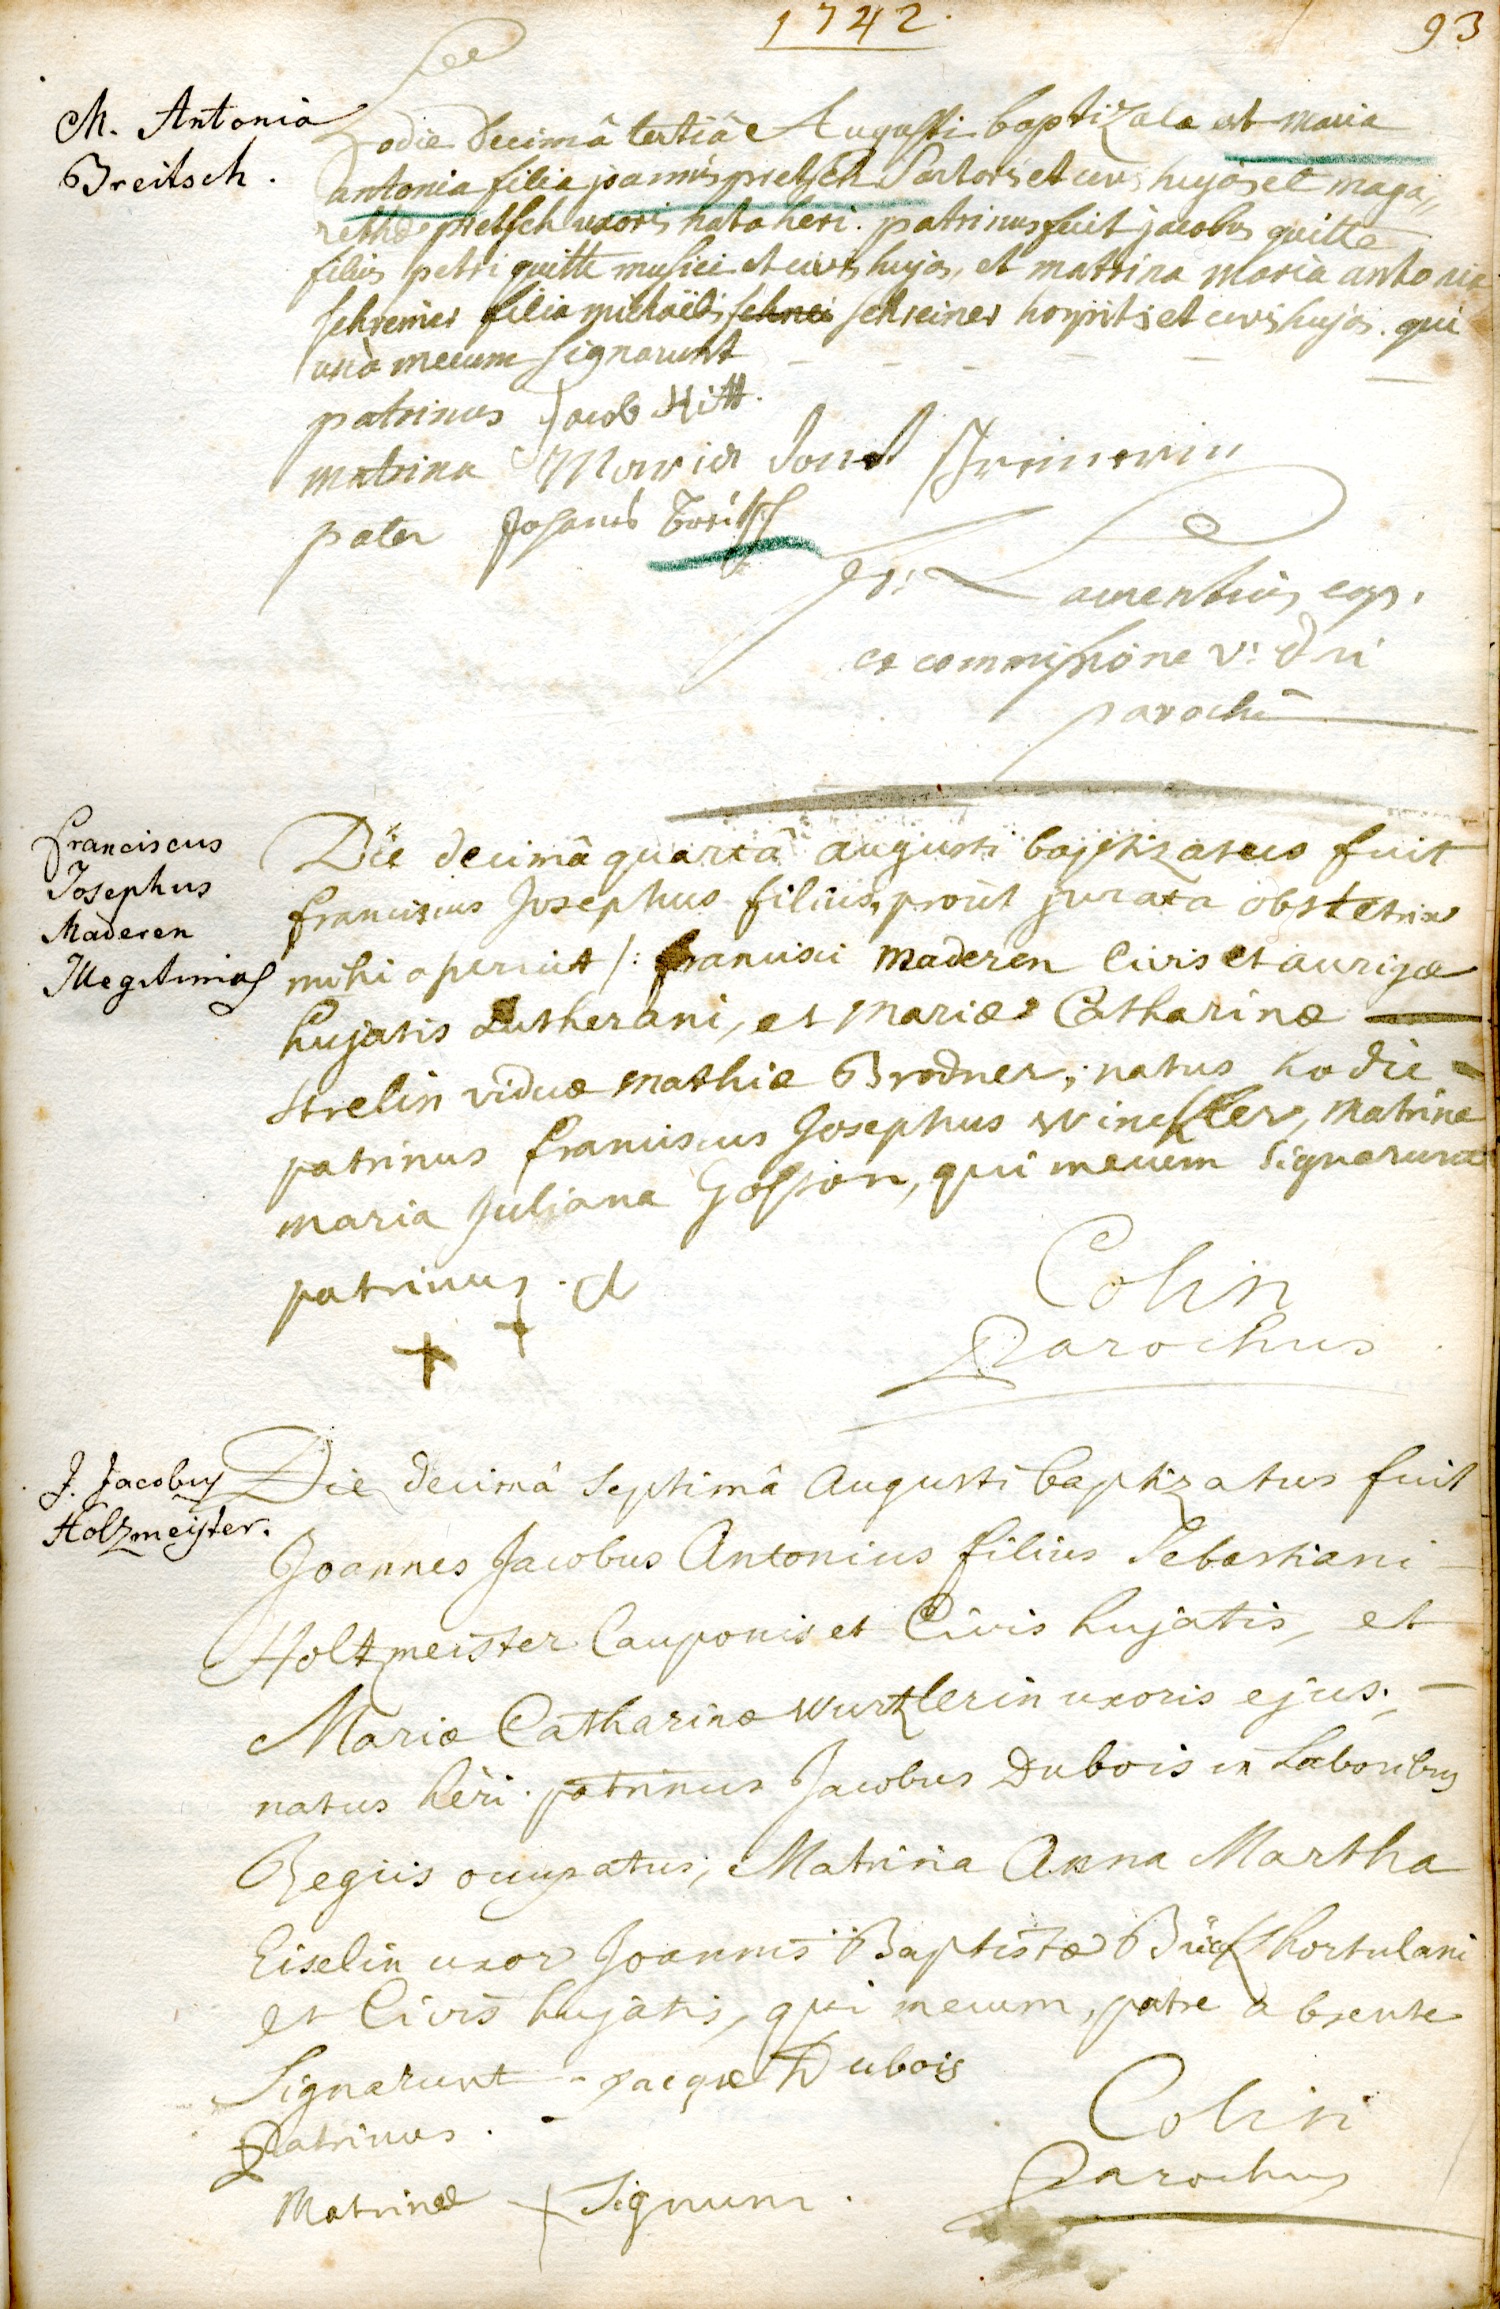 1742.
93
M. Antonia
Breitsch.
hodie decimâ tertiâ Augusti baptizata est maria
antonia filia joannis pretsch Sartoris et civis hujas et maga„
rethæ pretsch uxoris nata heri. patrinus fuit jacobus quitte
filius petri quitte musici et civis hujas, et matrina maria antonia
schreiner filia michaëlis schnei schreiner hospitis et civis hujas. qui
unà mecum signarunt
patrinus Jacob Kitt.
matrina Maria
pater Johanes
fr: Laurentius cap.
ex commissione v: dni
parochi
Franciscus
Josephus
Maderen
Illegitimus
Die decimâ quartâ augusti baptizatus fuit
franciscus Josephus filius, prout jurata obstetrix
mihi aperuit /: francisci Maderen Civis et aurigæ
hujatis Lutherani, et Mariæ Catharinæ
Strelin viduæ Mathiæ Brodner, natus hodie
patrinus franciscus Josephus Winckler, Matrina
maria Juliana, qui mecum signarunt
patrinus. et
+ +
Colin
Parochus
J. Jacobus
Holzmeister.
Die decimâ Septimâ Augusti baptizatus fuit
Joannes Jacobus Antonius filius Sebastiani
Holtzmeister Cauponis et Civis hujatis, et
Mariæ Catharinæ Wurtzlerin uxoris ejus;
natus heri. patrinus Jacobus Dubois in Laboribus
Regiis occupatus, Matrina Anna Martha
Eiselin uxor Joannis Baptistæ hortulani
et Civis hujatis, qui mecum, patre absente
Signarunt - jacque Dubois
Patrinus.
Matrinæ + Signum.
Colin
Parochus